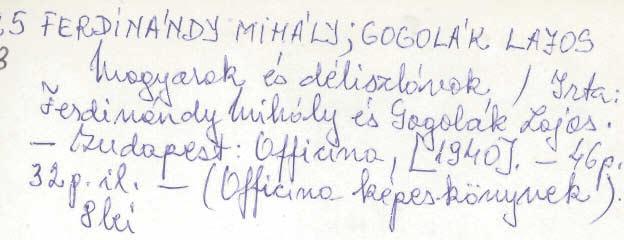 5 FERDINÁNDY MIHÁLY; GOGOLÁK LAJOS
Magyarok és déliszlávok / Irta:
Ferdinándy Mihály és Gogolák Lajos.
— Budapest: Officina, [1940]. — 46 p.
32 p. il. — (Officina képeskönyvek).
8 lei